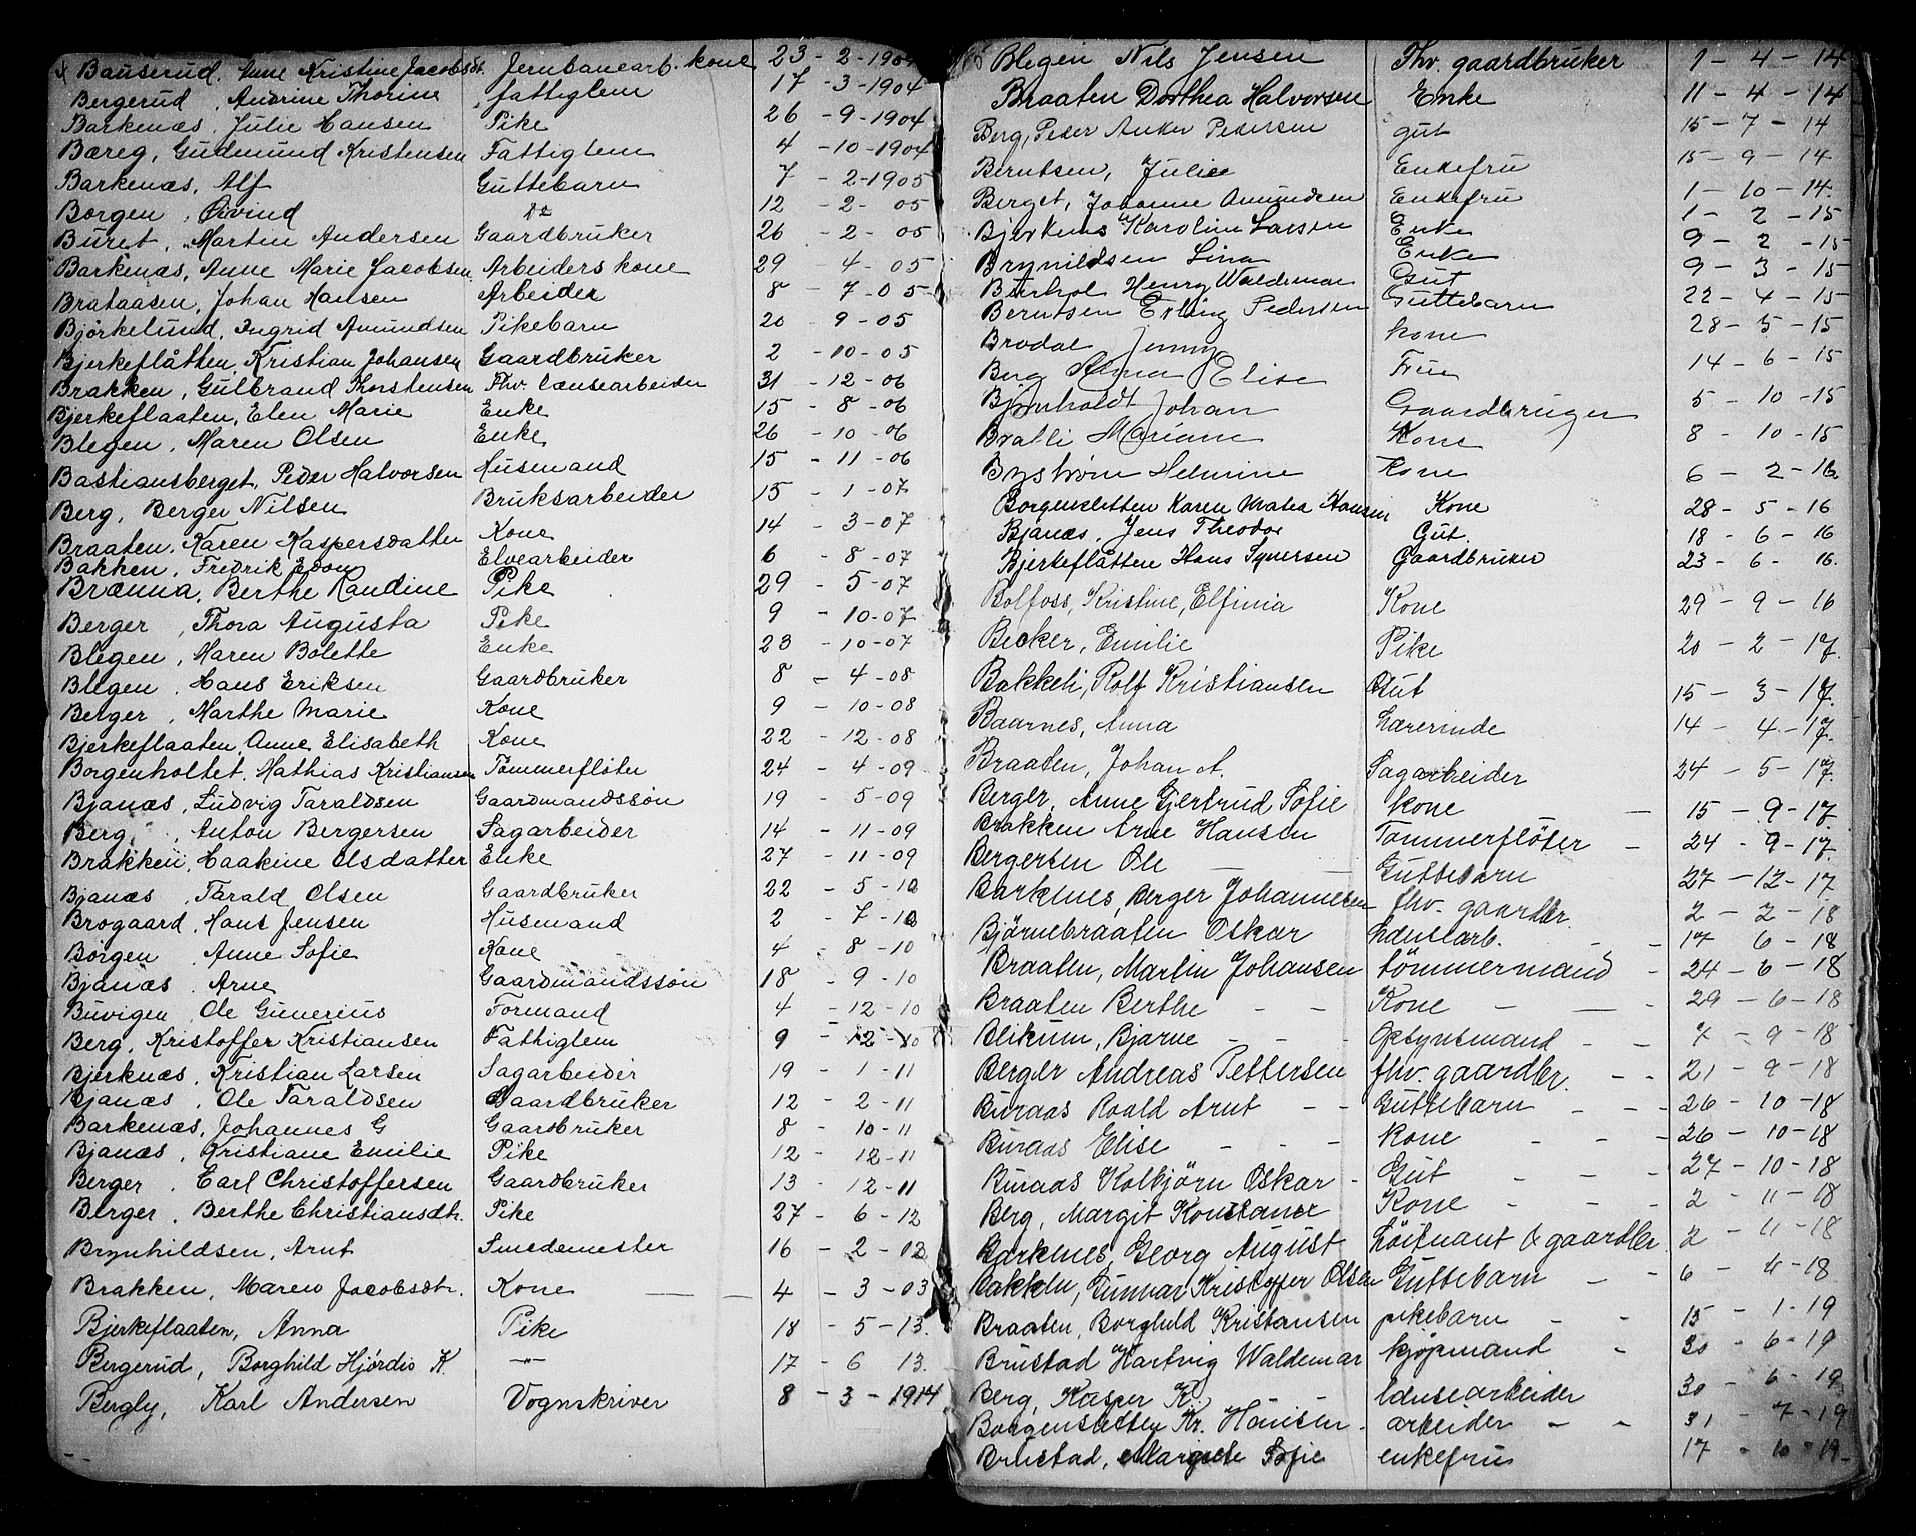 x Bauserud, Anne Kristine Jacobsdt. Jernbanearb. kone 23 - 2 - 1904
Bergerud, Andrine Thorine fattiglem 17 - 3 - 1904
Barkenæs, Julie Hansen Pike 26 - 9 - 1904
Bæreg, Gudmund Kristensen Fattiglem 4 - 10 - 1904
Barkenæs, Alf Guttebarn 7 - 2 - 1905
Borgen, Øivind do 12 - 2 - 05
Buret, Martin Andersen Gaardbruker 26 - 2 - 05
Barkenæs, Anne Marie Jacobsen Arbeiders kone 29 4 - 05
Brataasen, Johan Hansen Arbeider 8 - 7 - 05
Björkelund, Ingrid Amundsen Pikebarn 20 9 - 05
Bjerkeflåtten, Kristian Johansen Gaardbruker 2 - 10 - 05
Brakken, Gulbrand Thorstensen Fhv. lænsearbeider 31 - 12 - 06
Bjerkeflaaten, Elen Marie Enke 15 - 8 - 06
Blegen, Maren Olsen Enke 26 - 10 - 06
Bastiansberget, Peder Halvorsen Husmand 15 - 11 - 06
Berg, Berger Nilsen Bruksarbeider 15 - 1 - 07
Braaten, Karen Kaspersdatter Kone 14 - 3 - 07
Bakken, Fredrik Edon Elvearbeider 6 - 8 - 07
Brænna, Berthe Randine Pike 29 - 5 - 07
Berger, Thora Augusta Pike 9 - 10 - 07
Blegen, Maren Bolette Enke 23 - 10 - 07
Blegen, Hans Eriksen Gaardbruker 8 - 4 - 08
Berger, Marthe Marie Kone 9 - 10 - 08
Bjerkeflaaten, Anne Elisabeth Kone 22 - 12 - 08
Borgenholtet, Mathias Kristiansen Tømmerfløter 24 - 4 - 09
Bjanæs, Ludvig Taraldsen Gaardmandssön 19 - 5 - 09
Berg, Anton Bergersen Sagarbeider 14 - 11 - 09
Brakken, Haakine Olsdatter Enke 27 - 11 - 09
Bjanæs, Tarald Olsen Gaardbruker 22 - 5 - 10
Brogaard, Hans Jensen Husmand 2 - 7 - 10
Borgen, Anne Sofie Kone 4 - 8 - 10
Bjanæs, Arne Gaardmandssön 18 - 9 - 10
Buvigen, Ole Gunerius Formand 4 - 12 - 10
Berg, Kristoffer Kristiansen Fattiglem 9 - 12 - 10
Bjerknæs, Kristian Larsen Sagarbeider 19 - 1 - 11
Bjanæs, Ole Taraldsen Gaardbruker 12 - 2 - 11
Barkenæs, Johannes G Gaardbruker 8 - 10 - 11
Bjanæs, Kristiane Emilie Pike 12 - 12 - 11
Berger, Carl Christoffersen Gaardbruker 13 - 12 - 11
Berger, Berthe Christiansdtr. Pike 27 - 6 - 12
Brynhildsen, Arnt Smedemester 16 - 2 - 02
Brakken, Maren Jacobsdtr. Kone 4 - 3 - 03
Bjerkeflaaten, Anna Pike 18 - 5 - 13.
Bergerud, Borghild Hjördis K. -"- 17 - 6 13.
Bergly, Karl Andersen Vognskriver 8 - 3 - 1914
Blegen Nils Jensen Fhv. gaardbruker 1 - 4 - 14
Braaten Dorthea Halvorsen Enke 11 - 4 - 14
Berg, Peder Anker Pedersen gut 15 - 7 - 14
Berntsen, Julie Enkefru 15 - 9 - 14
Berget, Johanne Amundsen Enkefru 1 - 10 - 14.
Bjerknes Karoline Larsen Enke 1 - 2 - 15
Brynildsen Lina Enke 9 - 2 - 15
Henry Waldemar Gut 9 - 3 - 15
Berntsen Erling Pedersen Guttebarn 22 - 4 - 15
Brodal Jenny kone 28 - 5 - 15
Berg Anna Elise Frue 14 - 6 - 15
Björnholdt Johan Gaardbruger 5 - 10 - 15
Bralli Mariane Kone 8 - 10 - 15
Byström Helmine Kone 6 - 2 - 16
Borgensletten Karen Mathea Hansen Kone 28 - 5 - 16
Bjanæs, Jens Theodor Gut. 18 - 6 - 16
Bjerkeflåtten Hans Syversen Gaardbruker 23 - 6 - 16.
Bolfoss, Kristine, Elfinia Kone 29 - 9 - 16
Becker, Emilie Pike 20 - 2 - 17.
Bakkeli, Rolf Kristiansen Gut 15 - 3 - 17.
Baarnes, Anna Lærerinde 14 - 4 - 17.
Braaten, Johan A. Sagarbeider 24 - 5 - 17.
Berger, Anne Gjertrud Sofie kone - 15 - 9 - 17.
Brakken Arne Hansen Tømmerflöter - 24 - 9 - 17.
Bergersen Ole - - Guttebarn 27 - 12 - 17
Barkenes, Berger Johannesen fhv. gaardbr. 2 - 2 - 18
Bjørnebraaten Oskar Lænsearb. - - 17 6 - 18
Braaten, Martin Johansen tömmermand - 24 - 6 - 18
Braaten Berthe - - Kone - - 29 - 6 - 18
Blikum, Bjarne - - - Opsynsmand - - 7 - 9 - 18
Berger Andreas Pettersen fhv. gaardbr. - - 21 - 9 - 18
Buraas Roald Arnt - - Guttebarn - - 26 - 10 - 18
Buraas Elise - - - kone - - - 26 - 10 - 18
Buraas Kolbjörn Oskar - Gut - - 27 - 10 - 18
Berg, Margit Konstance Kone - - - 2 - 11 - 18
Barkenes, Georg August Löitnant & gaardbr. 2 - 11 - 18
Bakken, Gunvar Kristoffer Olsen Guttebarn - - 6 - 4 - 18
Braaten, Borghild Kristansen pikebarn - - 15 - 1 - 19
Brustad Hartvig Waldemar kjöpmand - 30 - 6 - 19
Berg, Kasper K. - - lænsearbeider 30 - 6 - 19
Borgensletten Kr. Hansen - arbeider - - 31 - 7 - 19
Brustad, Margrete Sofie enkefru 17 - 10 - 19-